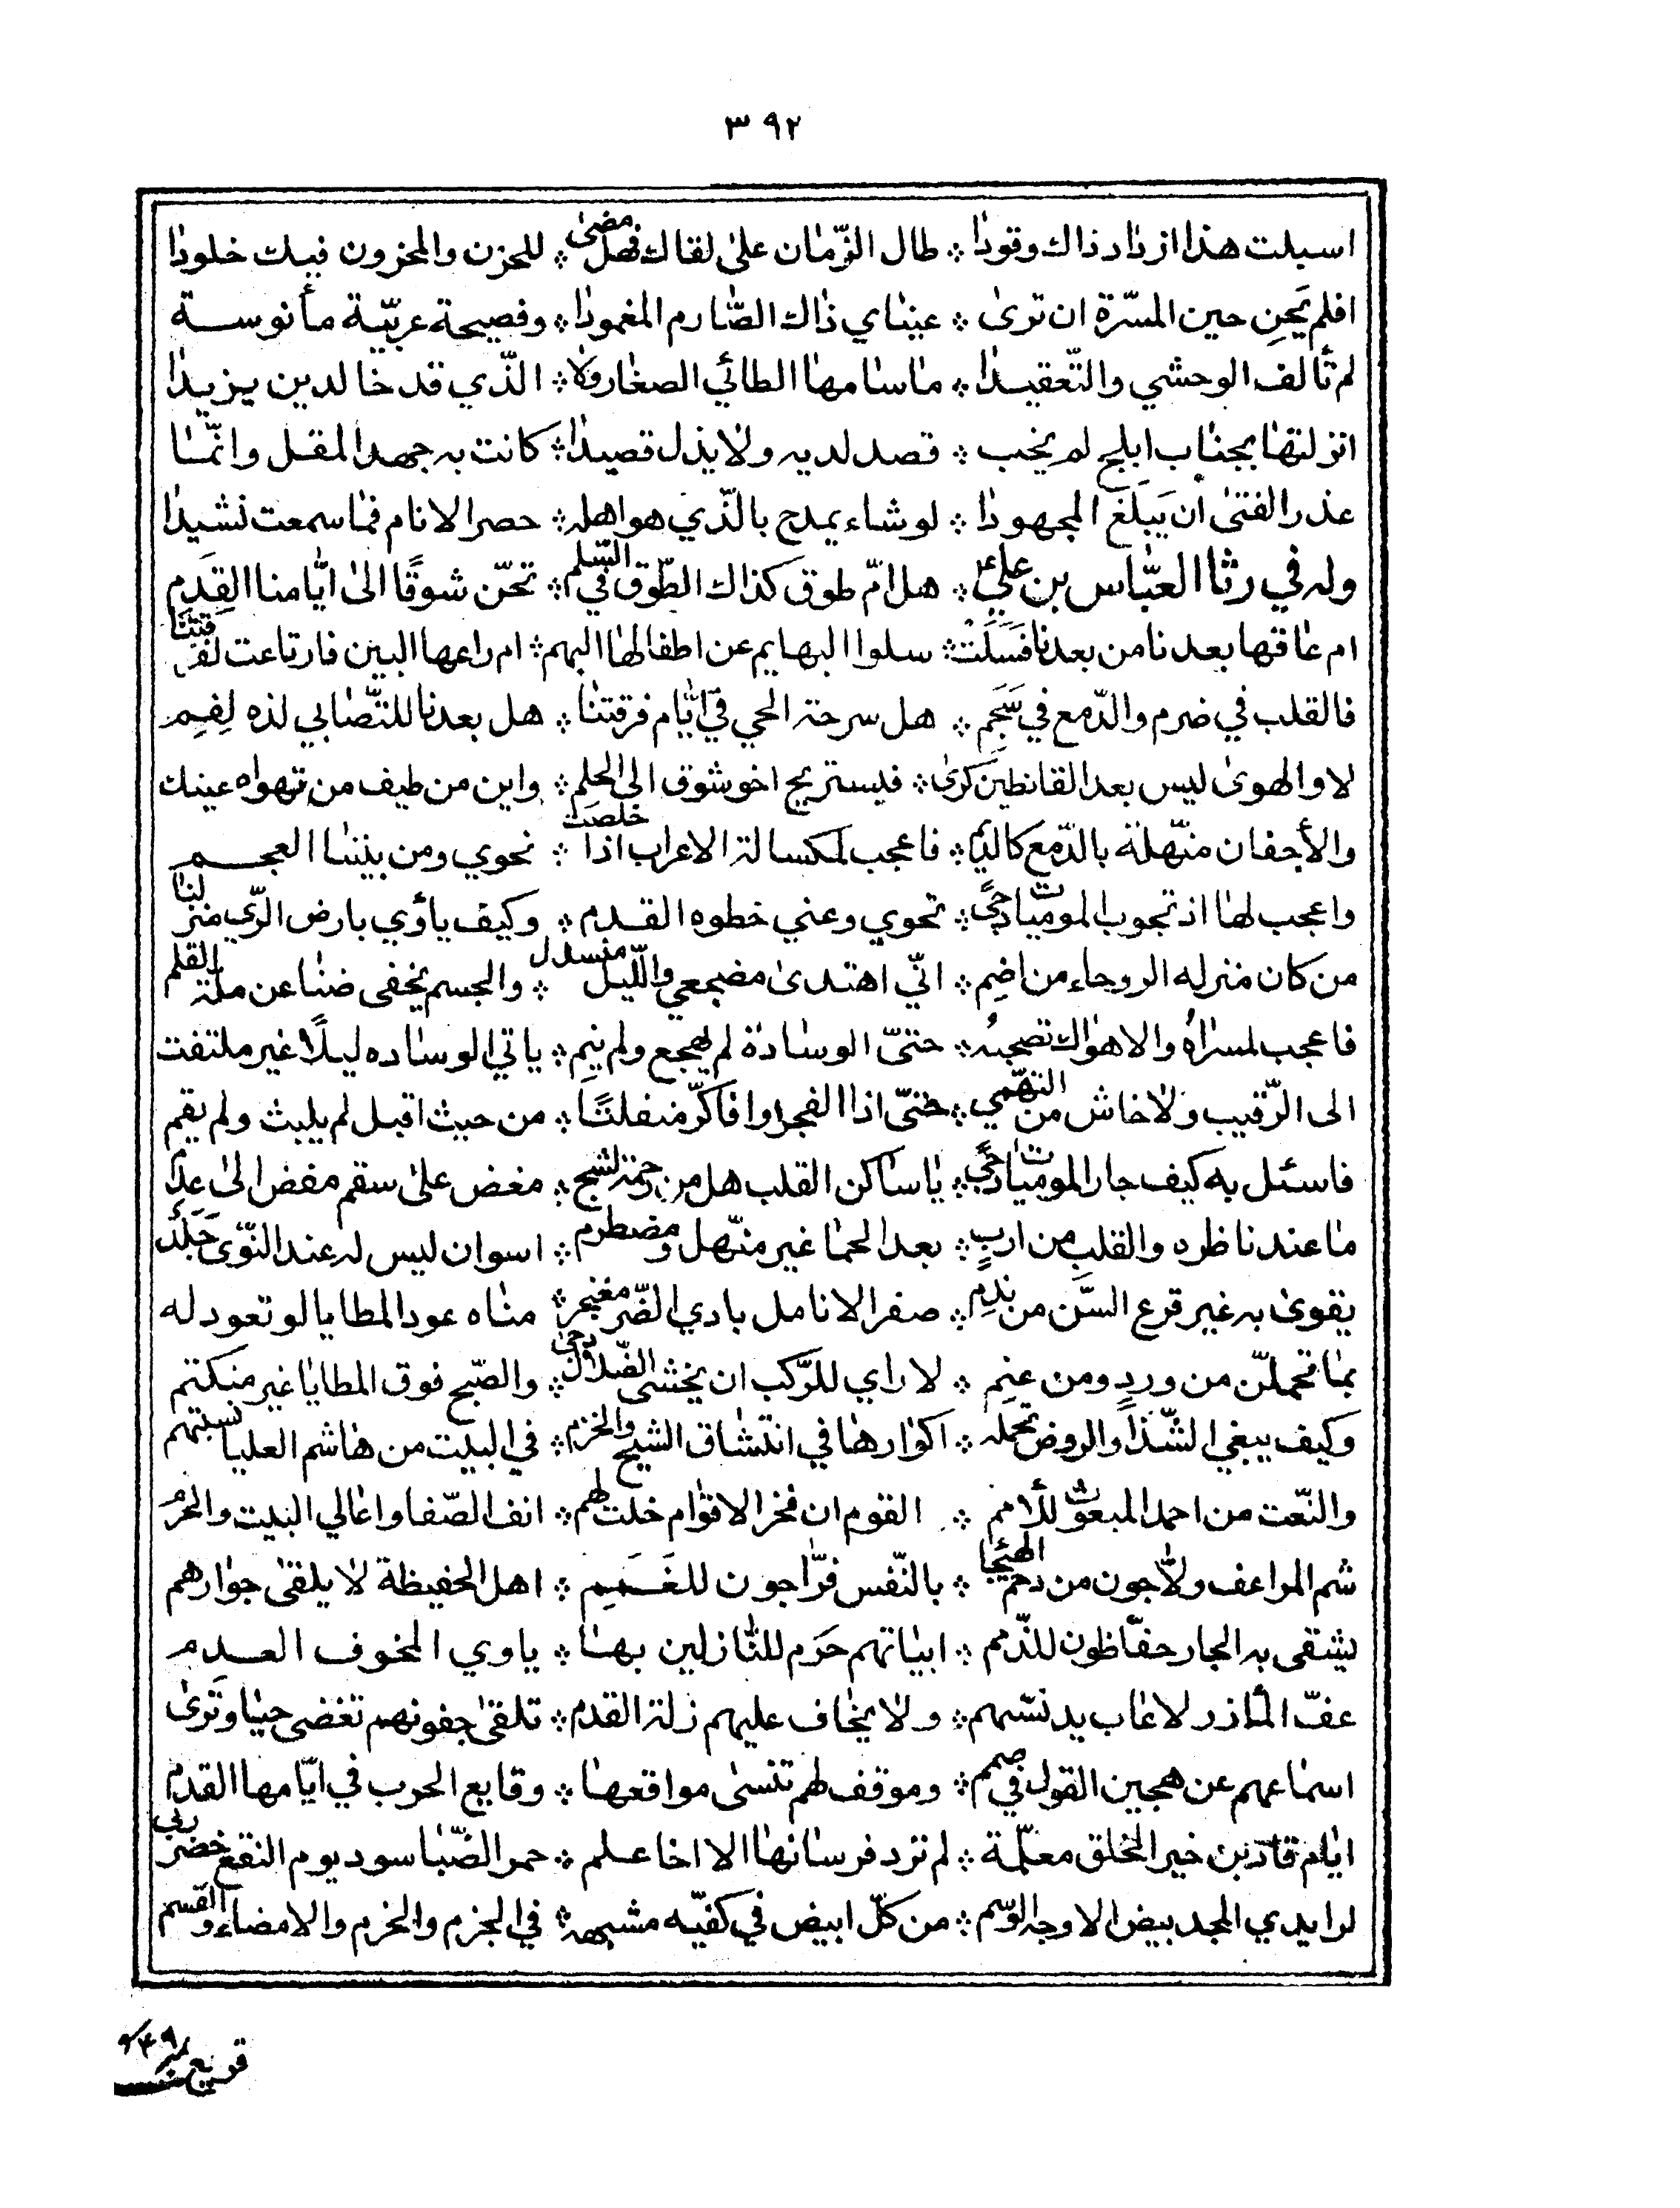 ٣٩٢
اسبلت هذا ازداد ذاك وقودا ⁘ طال الزّمان على لقاك فهل مضى ⁘ للحزن والمحزون فيك خلودا
افلم يَحنِ حين المسرّة ان ترى ⁘ عيناي ذاك الصّارم المغمودا ⁘ وفصيحة عربيّة مأنوسة
لم تألف الوحشي والتّعقيدا ⁘ ما سامها الطائي الصغار ولا ⁘ الّذي قد خالدبن يزيدا
انزلتها بجناب ابلج لم يخب ⁘ قصد لديه ولا يذل قصيدا ⁘ كانت به جهد المقل وانّما
عذر الفتى ان يَبلغَ المجهودا ⁘ لو شاء يمدح بالّذي هو اهله ⁘ حصر الانام فما سمعت نشيدا
وله في رثا العبّاس بن علي ع ⁘ هل امّ طوق كذاك الطّوق في السّلم ⁘ تحنّ شوقًا الى ايّامنا القِدَم
ام عاقها بعدنا من بعدنا فسلت ⁘ سلوا البهايم عن اطفالها البهم ⁘ ام راعها البين فارتاعت لفرقتنا
فالقلب في ضرم والدّمع في سَجَم ⁘ هل سرحة الحي في ايّام فرقتنا ⁘ هل بعدنا للتّصابي لذه لِفِم
لا والهوى ليس بعد القانطين كرى ⁘ فيستريح اخو شوق الى الحلم ⁘ واين من طيف من تهواه عينك
والأجفان منهّلة بالدّمع كالديم ⁘ فاعجب لمكسالة الاعراب اذا خلصت ⁘ نحوي ومن بيننا العجم
واعجب لها اذ تجوب الموميات دجًى ⁘ نحوي وعني خطوه القدم ⁘ وكيف يأوي بارض الرّي منزلنا
من كان منزله الروحاء من اضِم ⁘ انّي اهتدى مضجعي والّليل منسدل ⁘ والجسم يخفى ضنا عن ملة القلم
فاعجب لمسراهُ والاهوال تصحبهُ ⁘ حتىّ الوسادة لم يهجع ولم ينِم ⁘ ياتي الوساده ليلًا غير ملتفت
الى الرّقيب ولا خاش من التهّمي ⁘ حتىّ اذا الفجر وافا كرّ منفلتًا ⁘ من حيث اقبل لم يلبث ولم يقم
فاسئل به كيف جار الموميات دجًى ⁘ يا ساكن القلب هل من رحمة لشبح ⁘ مغض على سقم مفض الى عدم
ما عند ناظره والقلب من اربٍ ⁘ بعد الحما غير منهّل ومضطرم ⁘ اسوان ليس له عند النّوى جَلَدٌ
يقوى به غير قرع السّن من ندم ⁘ صفر الانامل بادي الضّر مغنجر ⁘ مناه عود المطايا لو تعود له
بما تحملّن من وردٍ ومن عنِم ⁘ لا راي للرّكب ان يخشى الضّلال دجى ⁘ والصّبح فوق المطايا غير منكتم
وكيف يبغي الشّذا والروض تحمله ⁘ اكوارها في انتشاق الشيح والخزم ⁘ في البيت من هاشم العليا نسبتهم
والنّعت من احمد المبعوث للأمم ⁘ القوم ان فخر الاقوام خلت لهم ⁘ انف الصّفا واعالي البيت والحرم
شم المراعف ولّاجون من دحم الهيجا ⁘ بالنّفس فرّاجون للغَمَمِ ⁘ اهل الحفيظة لا يلقى جوارهم
يشقى به الجار حفّاظون للذّمم ⁘ ابياتهم حَرَم للنّازلين بها ⁘ ياوي المخوف العدم
عفّ المآزر لا عاب يدنسّهم ⁘ ولا يخاف عليهم زلة القدم ⁘ تلقى جفونهم تغضى حيا وترى
اسماعهم عن هجين القول في صمم ⁘ وموقف لهم تنسى مواقعها ⁘ وقايع الحرب في ايّامها القدم
ايام قاد بن خير الخلق معلّمة ⁘ لم ترد فرسانها الا اخا علم ⁘ حمر الضّبا سود يوم النقع خضر ربي
لرايدي المجد بيض الاوجه الوسّم ⁘ من كلّ ابيض في كفيّه مشبهه ⁘ في الجزم والحزم والامضاء والقسم